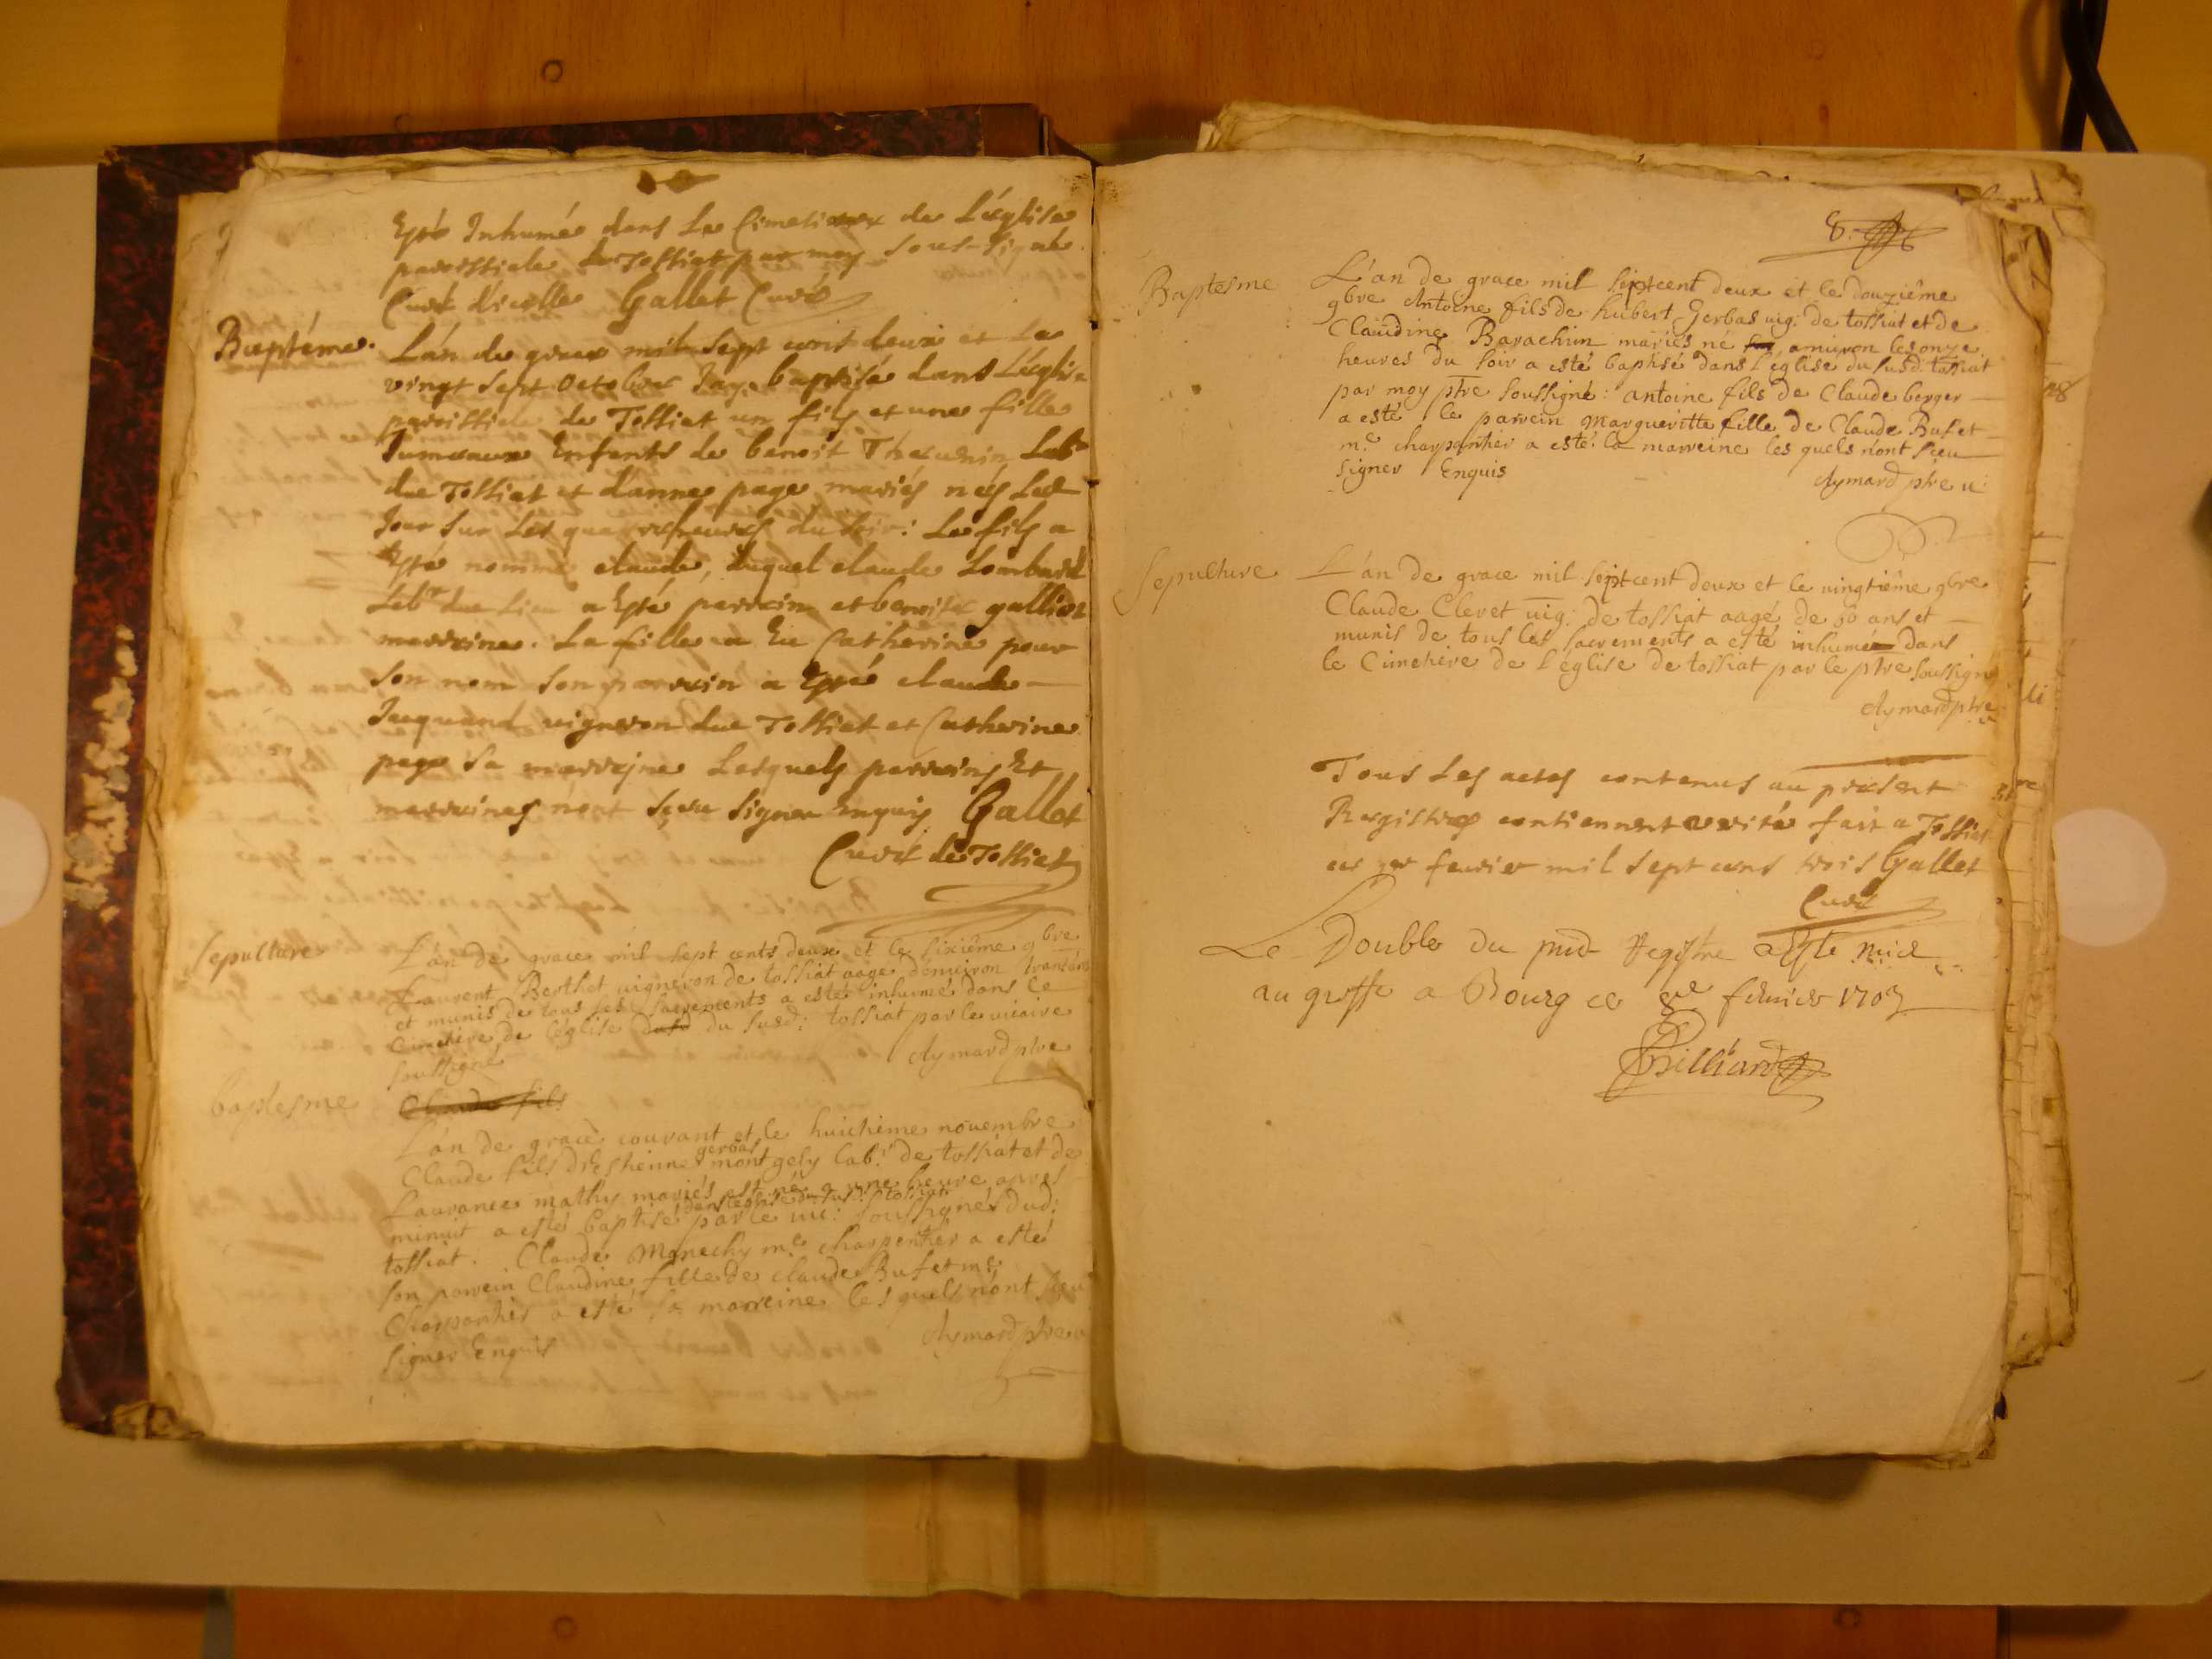 Esté Inhumé dans Le Cimetierre de L'église
paroissiale de Tossiat par moy sous-signé
Curé d'icelle Gallet Curé
Baptéme. L'án de grace mil sept cent deux et Le
vingt sept Octobre J'ay baptisé dans L'églis
paroissiale de Tossiat un fils et une fille
Jumeaux Enfants de benoit Thevenin Labr
due Tossiat et d'anne page mariés nés Led
Jour sur Les quatre heures du soir: Le fils a
Esté nommé claude, duquel claude Lombard
Labr due Lieu a Esté parrain et benoite galliot
marraine. La fille a Eu Catherine pour
son nom son parrain a Esté claude
Jacquand vigneron due Tossiat et Catherine
page sa marraine Lesquels parrains Et
marraines n'ont sçeu signer enquis Gallet
Curé de Tossiat
Sepulture L'án de grace mil sept cents deux et le sixiême 9bre
Laurent Berthet uigneron de tossiat aage d'enuiron trantans
et munis de tous les sacrements a esté inhumé dans le
Cimetire de l'église du susd: tossiat par le uicaire
soussigné Aymard ptre
baptesme Claude fils
L'án de grace courant et le huictième nouembre
gerbas
Claude fils d'estienne montgely labr de tossiat et de
Laurance mathy mariés est né a une heure apres
dans l'église du susd: tossiat
minuit a esté baptisé par le uic: soussignés dud:
tossiat. Claude Monechy me charpentier a esté
son parrein Claudine fille de claude Bufet me
Charpantier a esté sa marreine les quels n'ont sçeu
signer Enquis Aymard ptre u
8.
Baptesme L'an de grace mil septcent deux et le douziême
9bre Antoine fils de hubert Gerbas uig: de tossiat et de
Claudine Barachin mariés né anuiron les onze
heures du soir a esté baptisé dans l'église du susd: tossiat
par moy ptre soussigné: antoine fils de Claude berger
a esté le parrein margueritte fille de Claude Bufet
me charpantier a esté la marreine les quels n'ont sçeu
signer Enquis Aymard ptre u
Sepulture L'án de grace mil septcent deux et le uingtiême 9bre
Claude Cleret uig: de tossiat aagé de 60 ans et
munis de tous les sacrements a esté inhumé dans
le Cimetiere de l'église de tossiat par le ptre soussigné
Aymard ptre
u
Tous Les actes contenus au présent
Registre contiennent verité fait a Tossiat
ce 1er feurier mil sept cens trois Gallet
Curé
Le Double du pnt Registre a Esté mis
au greffe a Bourg ce 8e feurier 1703
Billiard